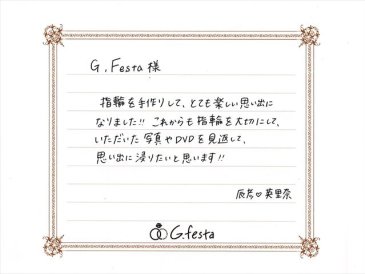 G.Festa 様
指輪を手作りして、とても楽しい思い出に
なりました!! これからも指輪を大切にして、
いただいた写真やDVDを見返して、
思い出に浸りたいと思います!!
辰彦♡英里奈
G.festa